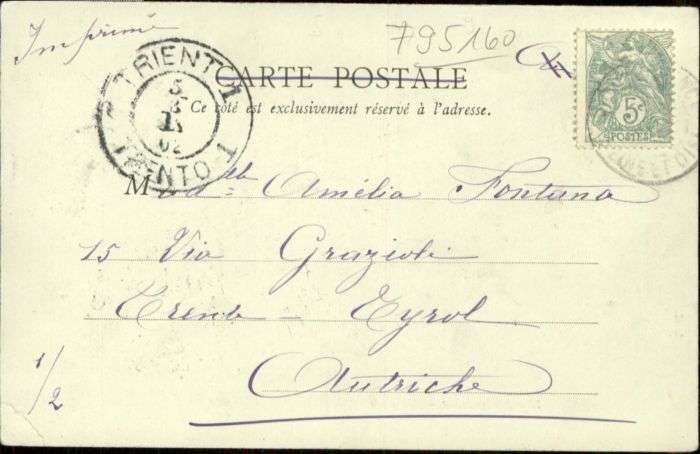 Imprimé
795160
CARTE POSTALE
Ce côté est exclusivement réservé à l'adresse.
TRIENT 1
5
02
TRENTO 1
5c
POSTES
Mad<sup>lle</sup> Amélia Fontana
15 Via Grazioli
Trente - Tyrol
Autriche
1/2